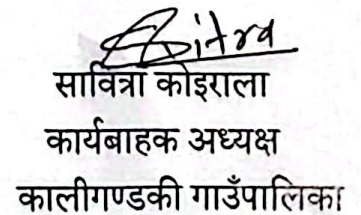 सावित्रा कोइराला
कार्यबाहक अध्यक्ष
कालीगण्डकी गाउँपालिका